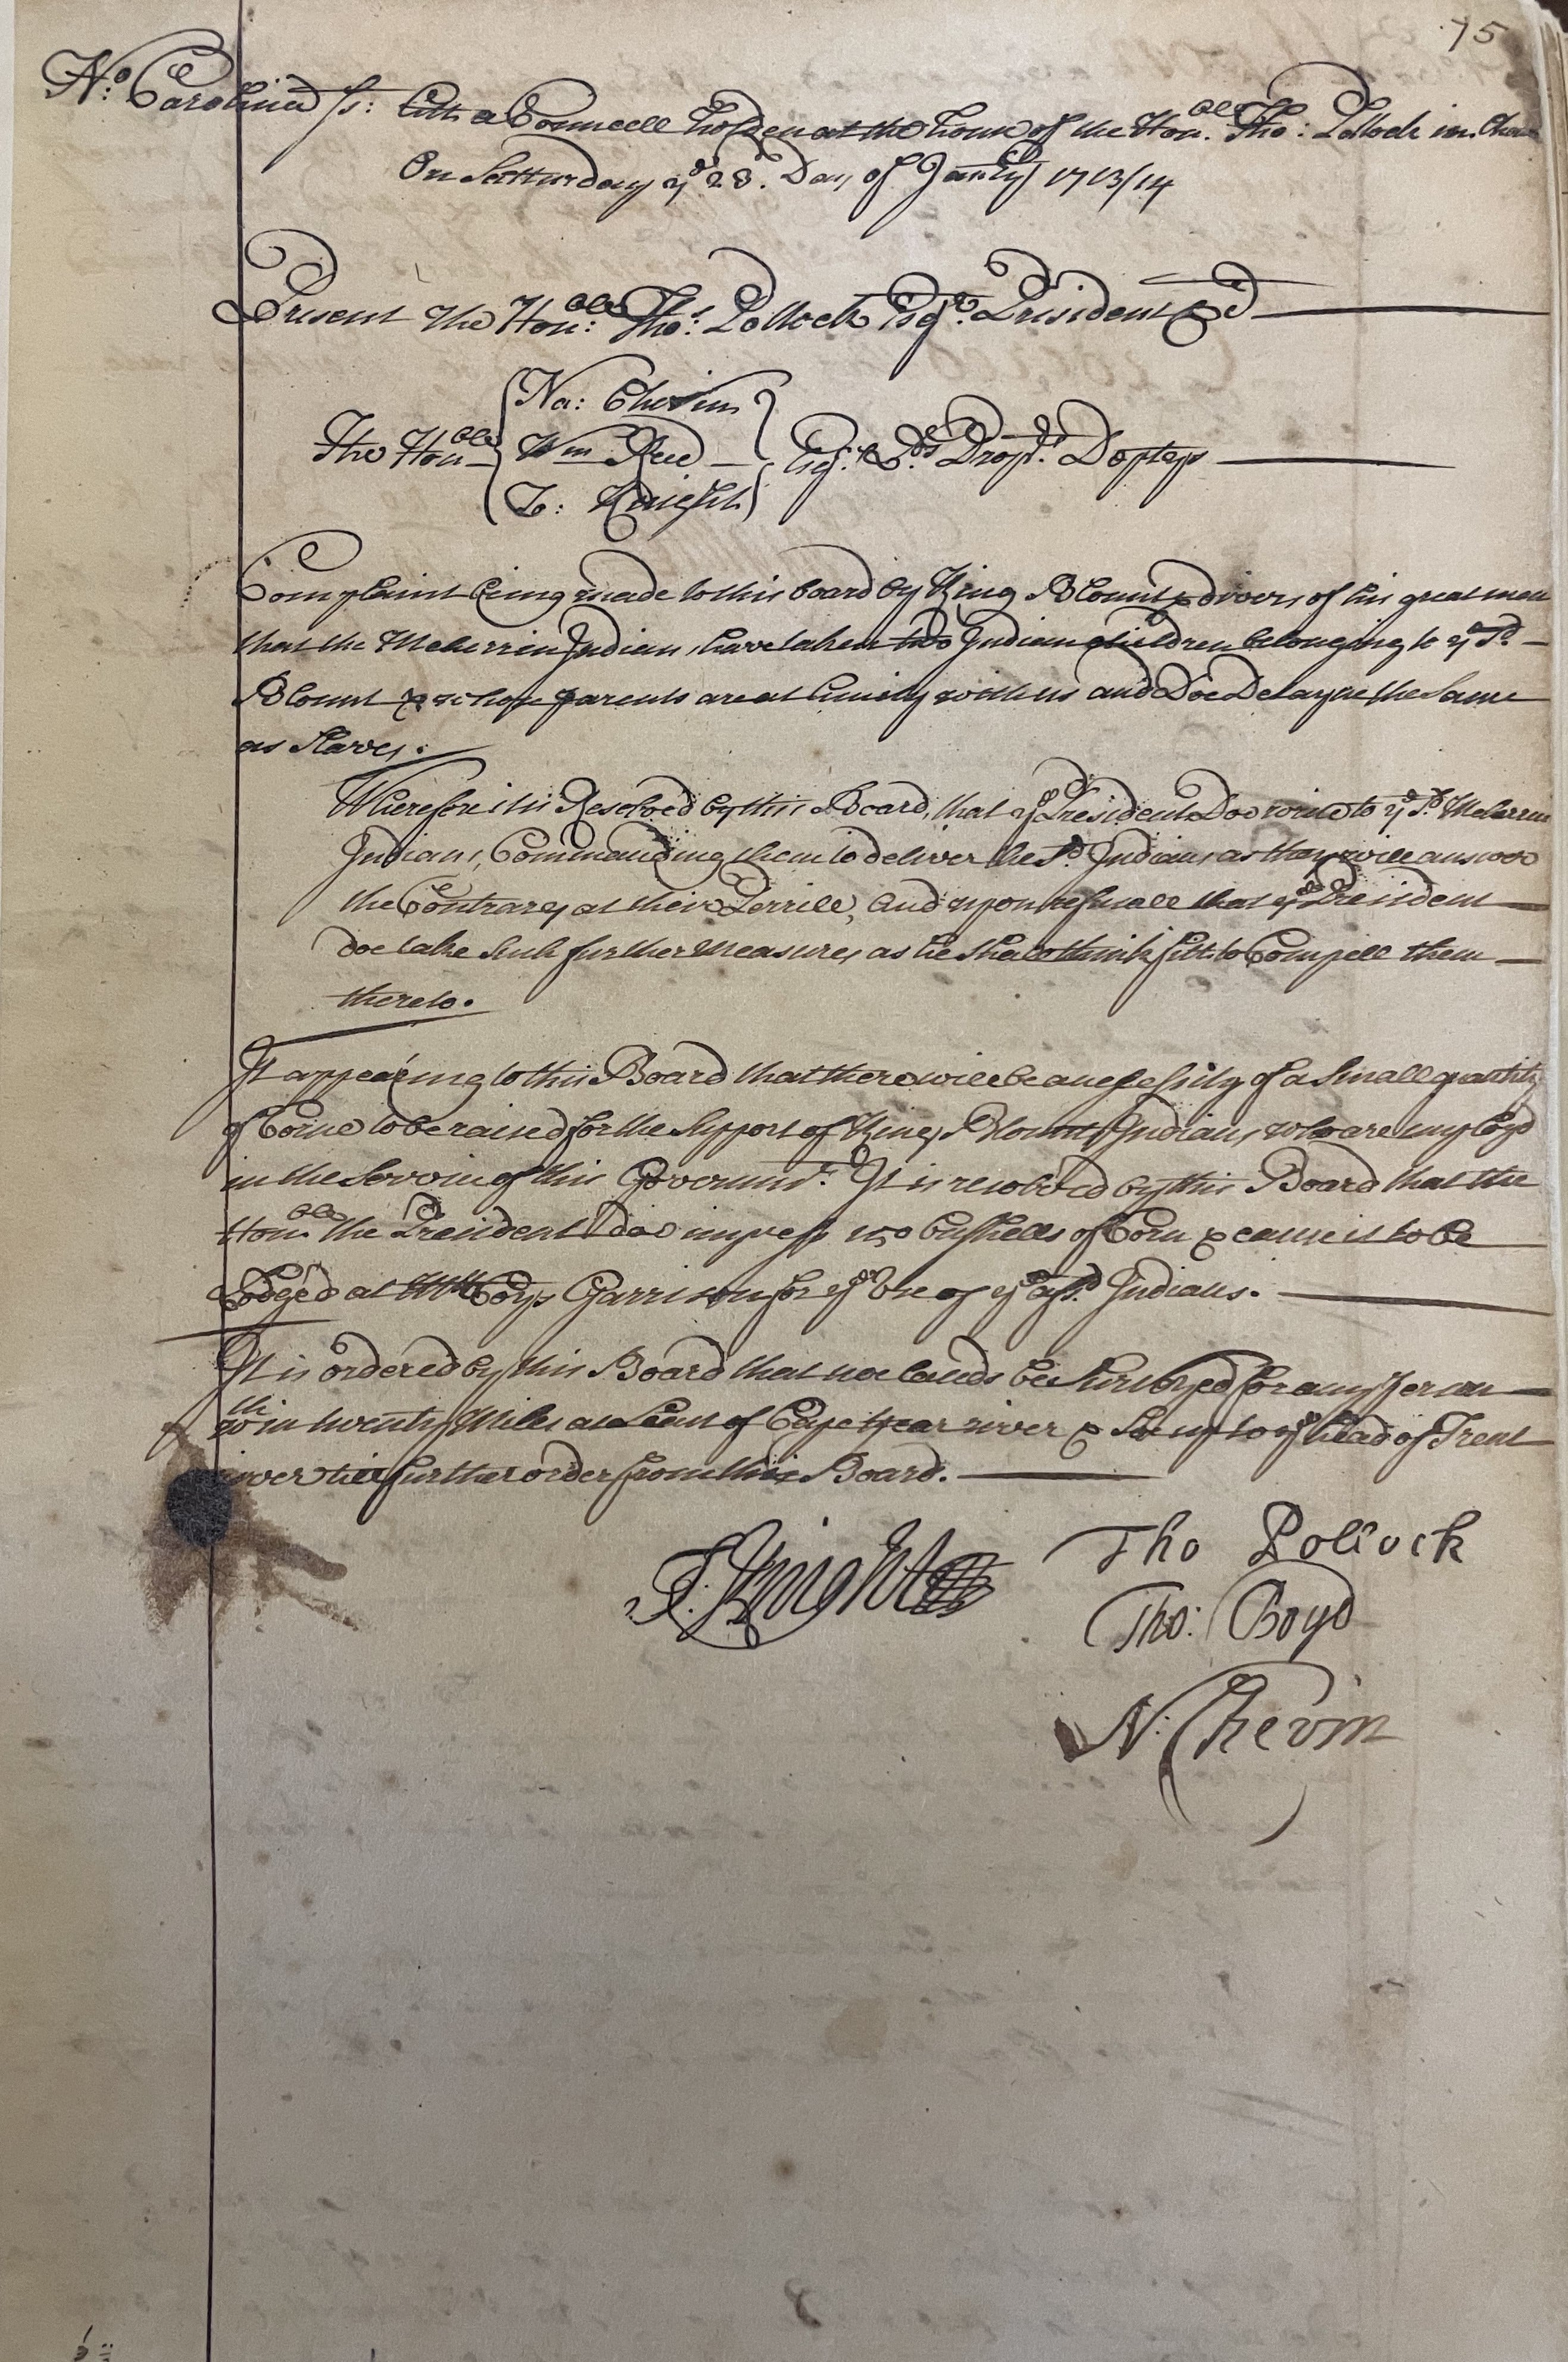 75
No: Carolina ss: Att a Councell holden at the house of the Honble. Tho: Pollock in Chow
On Satturday ye 23d. Day of Janry 1713/14
Present the Honble: Thos: Pollock Esqr. President &c
Na: Chevin
The Honble Wm Reed Esqrs. Lds Proprs. Deptys
T: Knight
Complaint being made to this board by King Blount & divers of his great men
that the Meherrin Indians have taken two Indian children belonging to ye Sd.
Blount & whose parents are at Amity with us and Doe Detayne the Same
as Slaves.
Wherefore it is Resolved by this Board, that ye President Doe write to ye Sd. Meherrin
Indians, Commanding them to deliver the Sd. Indians as they will answer
the Contrary at their Perrill, And upon refusall that ye President
doe take such further Measures as he shall think fitt to Compell them
thereto.
It appearing to this Board that there will be a nessessity of a Small quantity
of Corne to be raised for the Support of King Blounts Indians who are imployd
in the Service of this Governmt. It is resolved by this Board that the
Honble. the President doe impress 150 bushells of Corn & cause it to be
Lodged at Coll Boyds Garrison for ye Use of ye afsd. Indians.
It is ordered by this Board that noe lands be Surveyed for any Person
wthin twenty Miles at Least of Cape fear river & Soe up to ye head of Trent
river till further order from this Board.
T. Knight Tho Pollock
Tho: Boyd
N: Chevin